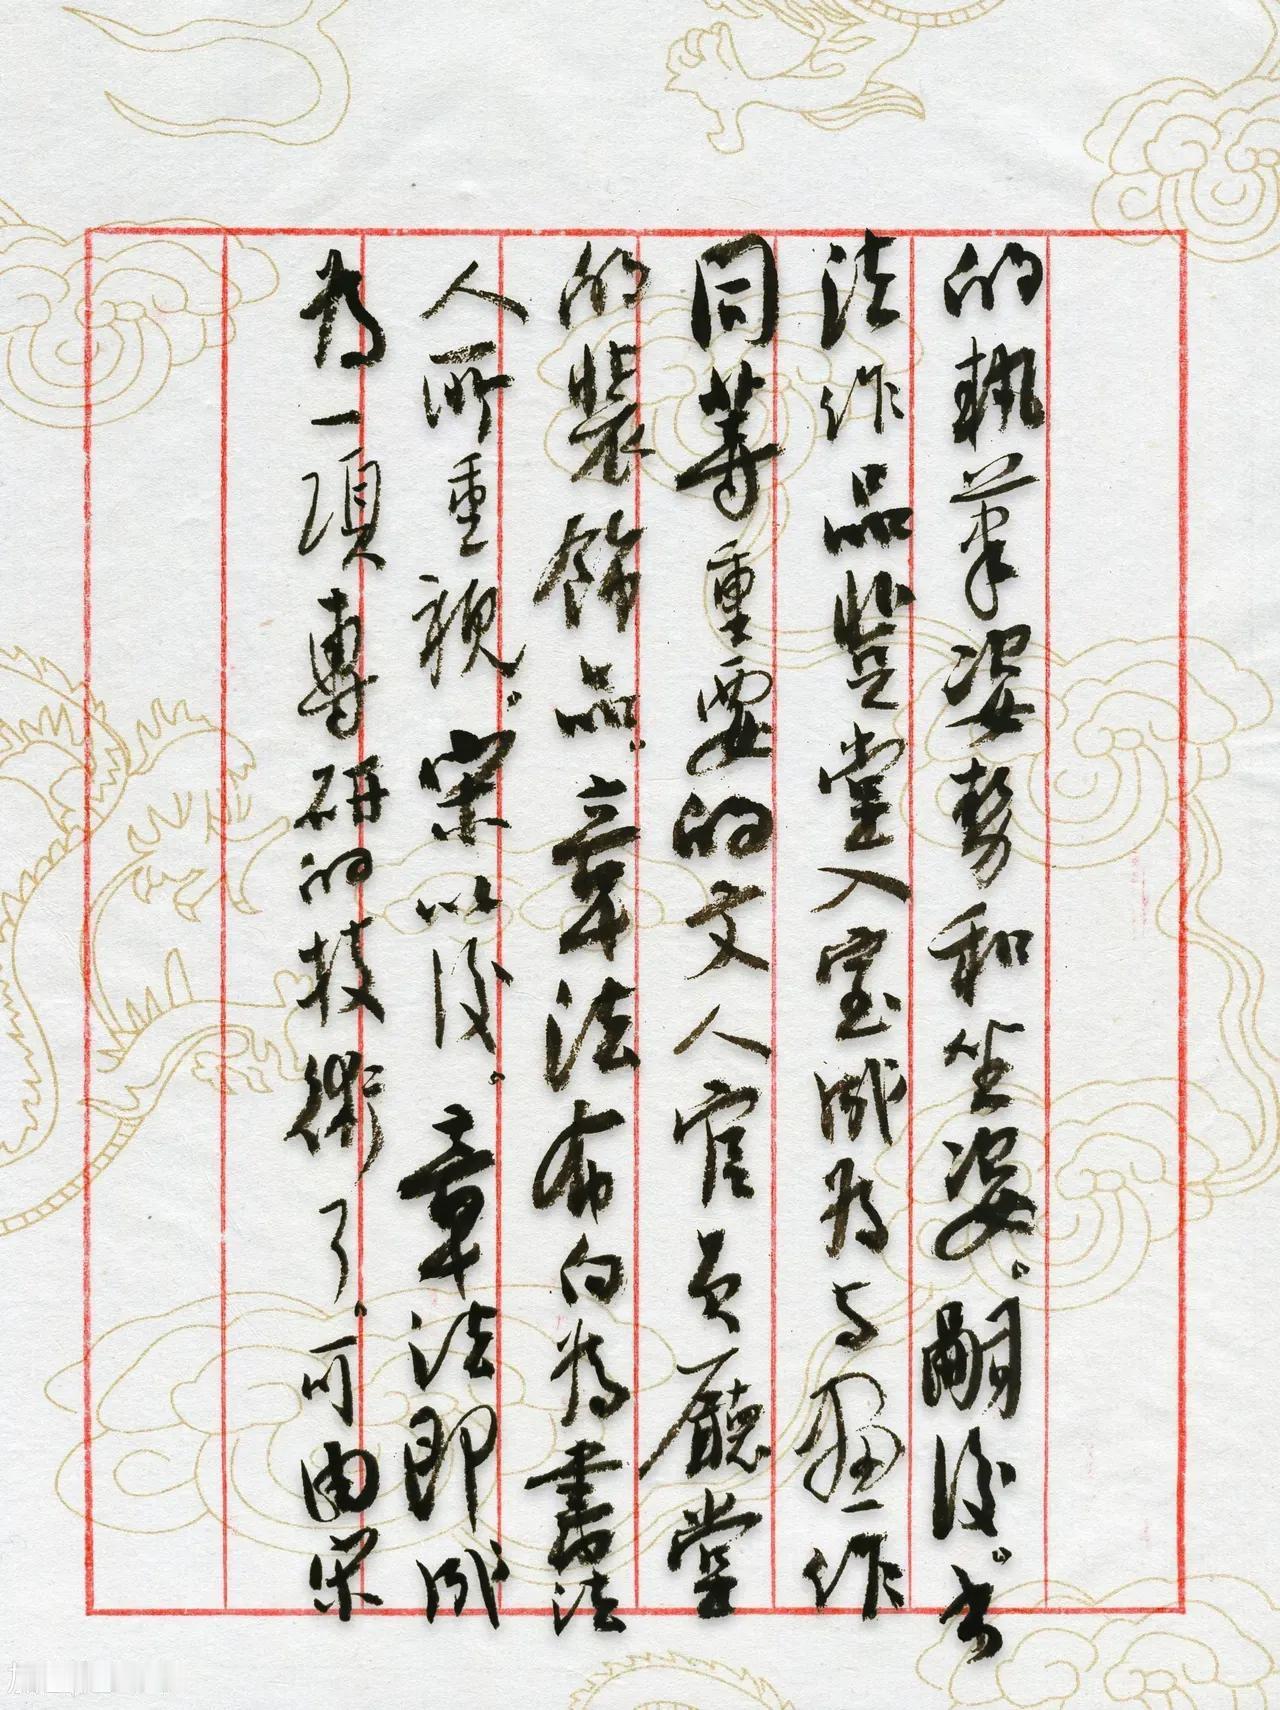 的執筆姿勢和坐姿。嗣後。书
法作品登堂入室成为与畫作
同等重要的文人官员廳堂
的裝飾品。章法布白為書法
人所重視。宋以後。章法即成
为一項專研的技術了。可由宋